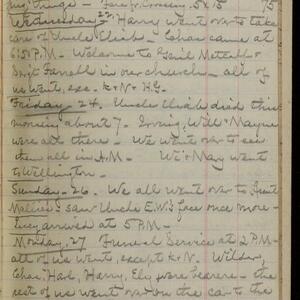 Fare for Crossing 5¢ 15 75
Wednesday 22 Harry went over to take
care of Uncle Uriah. Chas came at
6:50 P.M. Welcome to Genl Metcalf &
Farrell in our church - all of
us went, exc. K. & N. G.
Friday 24. Uncle Uriah died this
morning about 7. Irving, Will & Mayme
were all there. We went over to see
them all in A.M. W. & May went
to Wellington.
Sunday 26. We all went over to Aunt
saw Uncle E.W.'s face once more.
Lucy arrived at 5 P.M.
Monday, 27 Funeral Service at 2 P.M.
all of us went, except K. & N. Wilder,
Chas, Harl, Harry, Ely were bearers - the
rest of us went over on the car to the